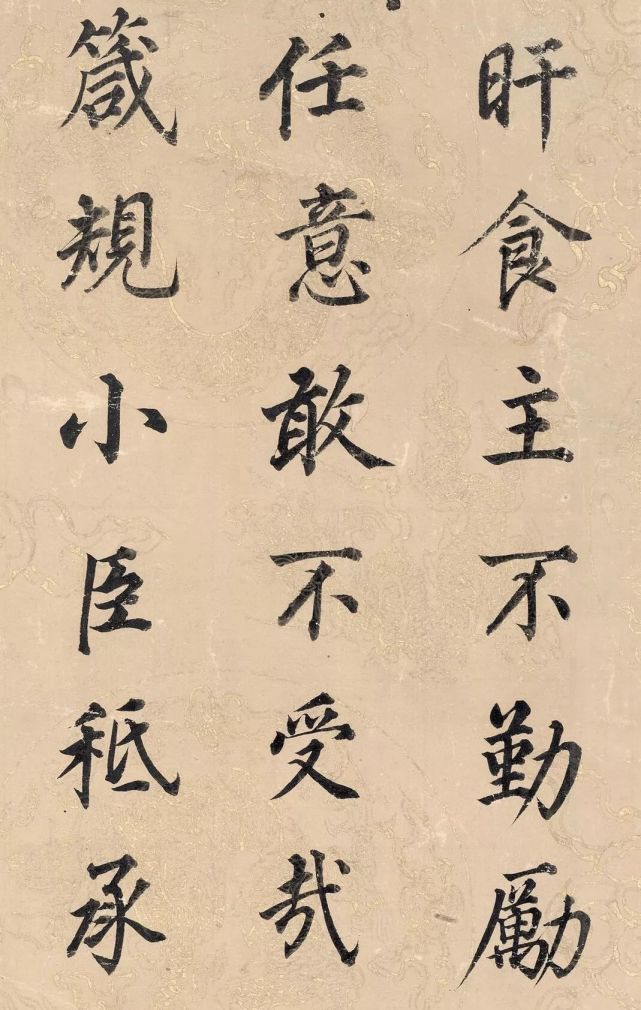 旰食主不勤勵
任意敢不受哉
箴規小臣秪承